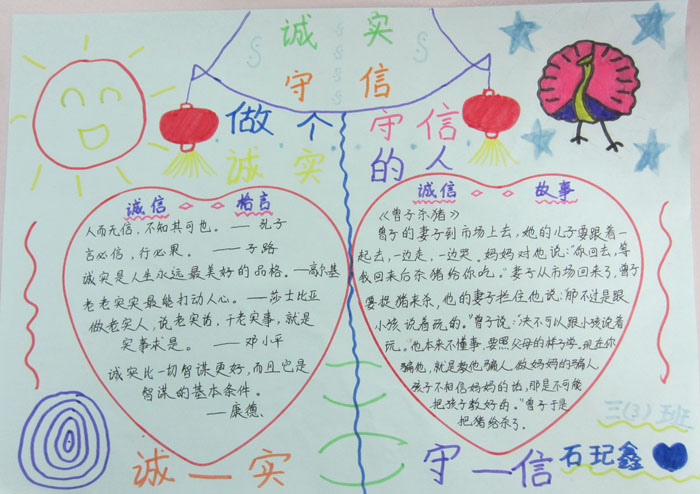 诚 实
守 信
做个守信
诚实的人
诚信 格言
人而无信，不知其可也。——孔子
言必信，行必果。——子路
诚实是人生永远最美好的品格。——高尔基
老老实实最能打动人心。——莎士比亚
做老实人，说老实话，干老实事，就是
实事求是。——邓小平
诚实比一切智谋更好，而且它是
智谋的基本条件。
——康德
诚信 故事
《曾子杀猪》
曾子的妻子到市场上去，她的儿子要跟着一
起去，一边走，一边哭。妈妈对他说：“你回去，等
我回来后杀猪给你吃。”妻子从市场回来了，曾子
要捉猪来杀，他的妻子拦住他说：“那不过是跟
小孩说着玩的。”曾子说：“决不可以跟小孩说着
玩。他本来不懂事，要照父母的样子学。现在你
骗他，就是教他骗人。做妈妈的骗人
孩子不相信妈妈的话，那是不可能
把孩子教好的。”曾子于是
把猪给杀了。
三(3)班
诚—实
守—信
石玘鑫